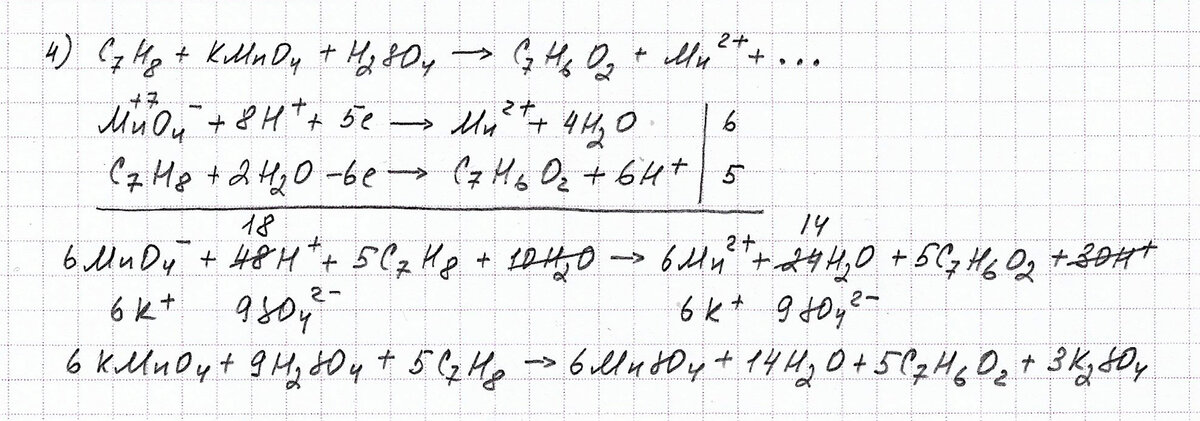 4) C₇H₈ + KMnO₄ + H₂SO₄ → C₇H₆O₂ + Mn²⁺ + ...
+7
MnO₄⁻ + 8H⁺ + 5e → Mn²⁺ + 4H₂O | 6
C₇H₈ + 2H₂O - 6e → C₇H₆O₂ + 6H⁺ | 5
18 14
6MnO₄⁻ + 48H⁺ + 5C₇H₈ + 10H₂O → 6Mn²⁺ + 24H₂O + 5C₇H₆O₂ + 30H⁺
6K⁺ 9SO₄²⁻ 6K⁺ 9SO₄²⁻
6KMnO₄ + 9H₂SO₄ + 5C₇H₈ → 6MnSO₄ + 14H₂O + 5C₇H₆O₂ + 3K₂SO₄